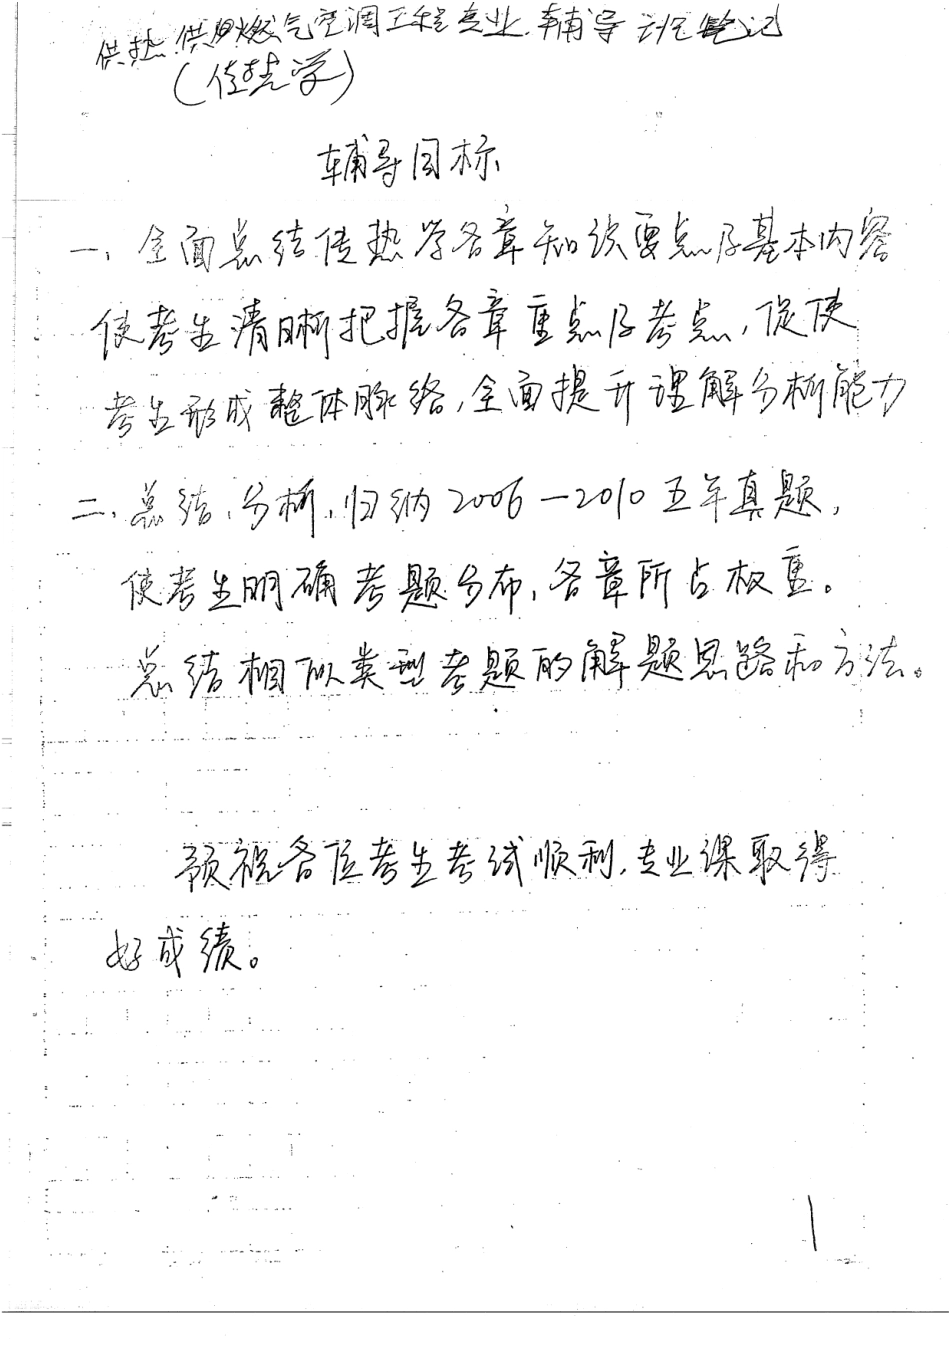 供热供燃气空调工程专业辅导班笔记
(传热学)
辅导目标
一、全面总结传热学各章知识要点及基本内容
使考生清晰把握各章重点及考点,促使
考生形成整体脉络,全面提升理解分析能力
二、总结、分析、归纳2006-2010五年真题,
使考生明确考题分布,各章所占权重。
总结相似类型考题的解题思路和方法。
预祝各位考生考试顺利,专业课取得
好成绩。
1